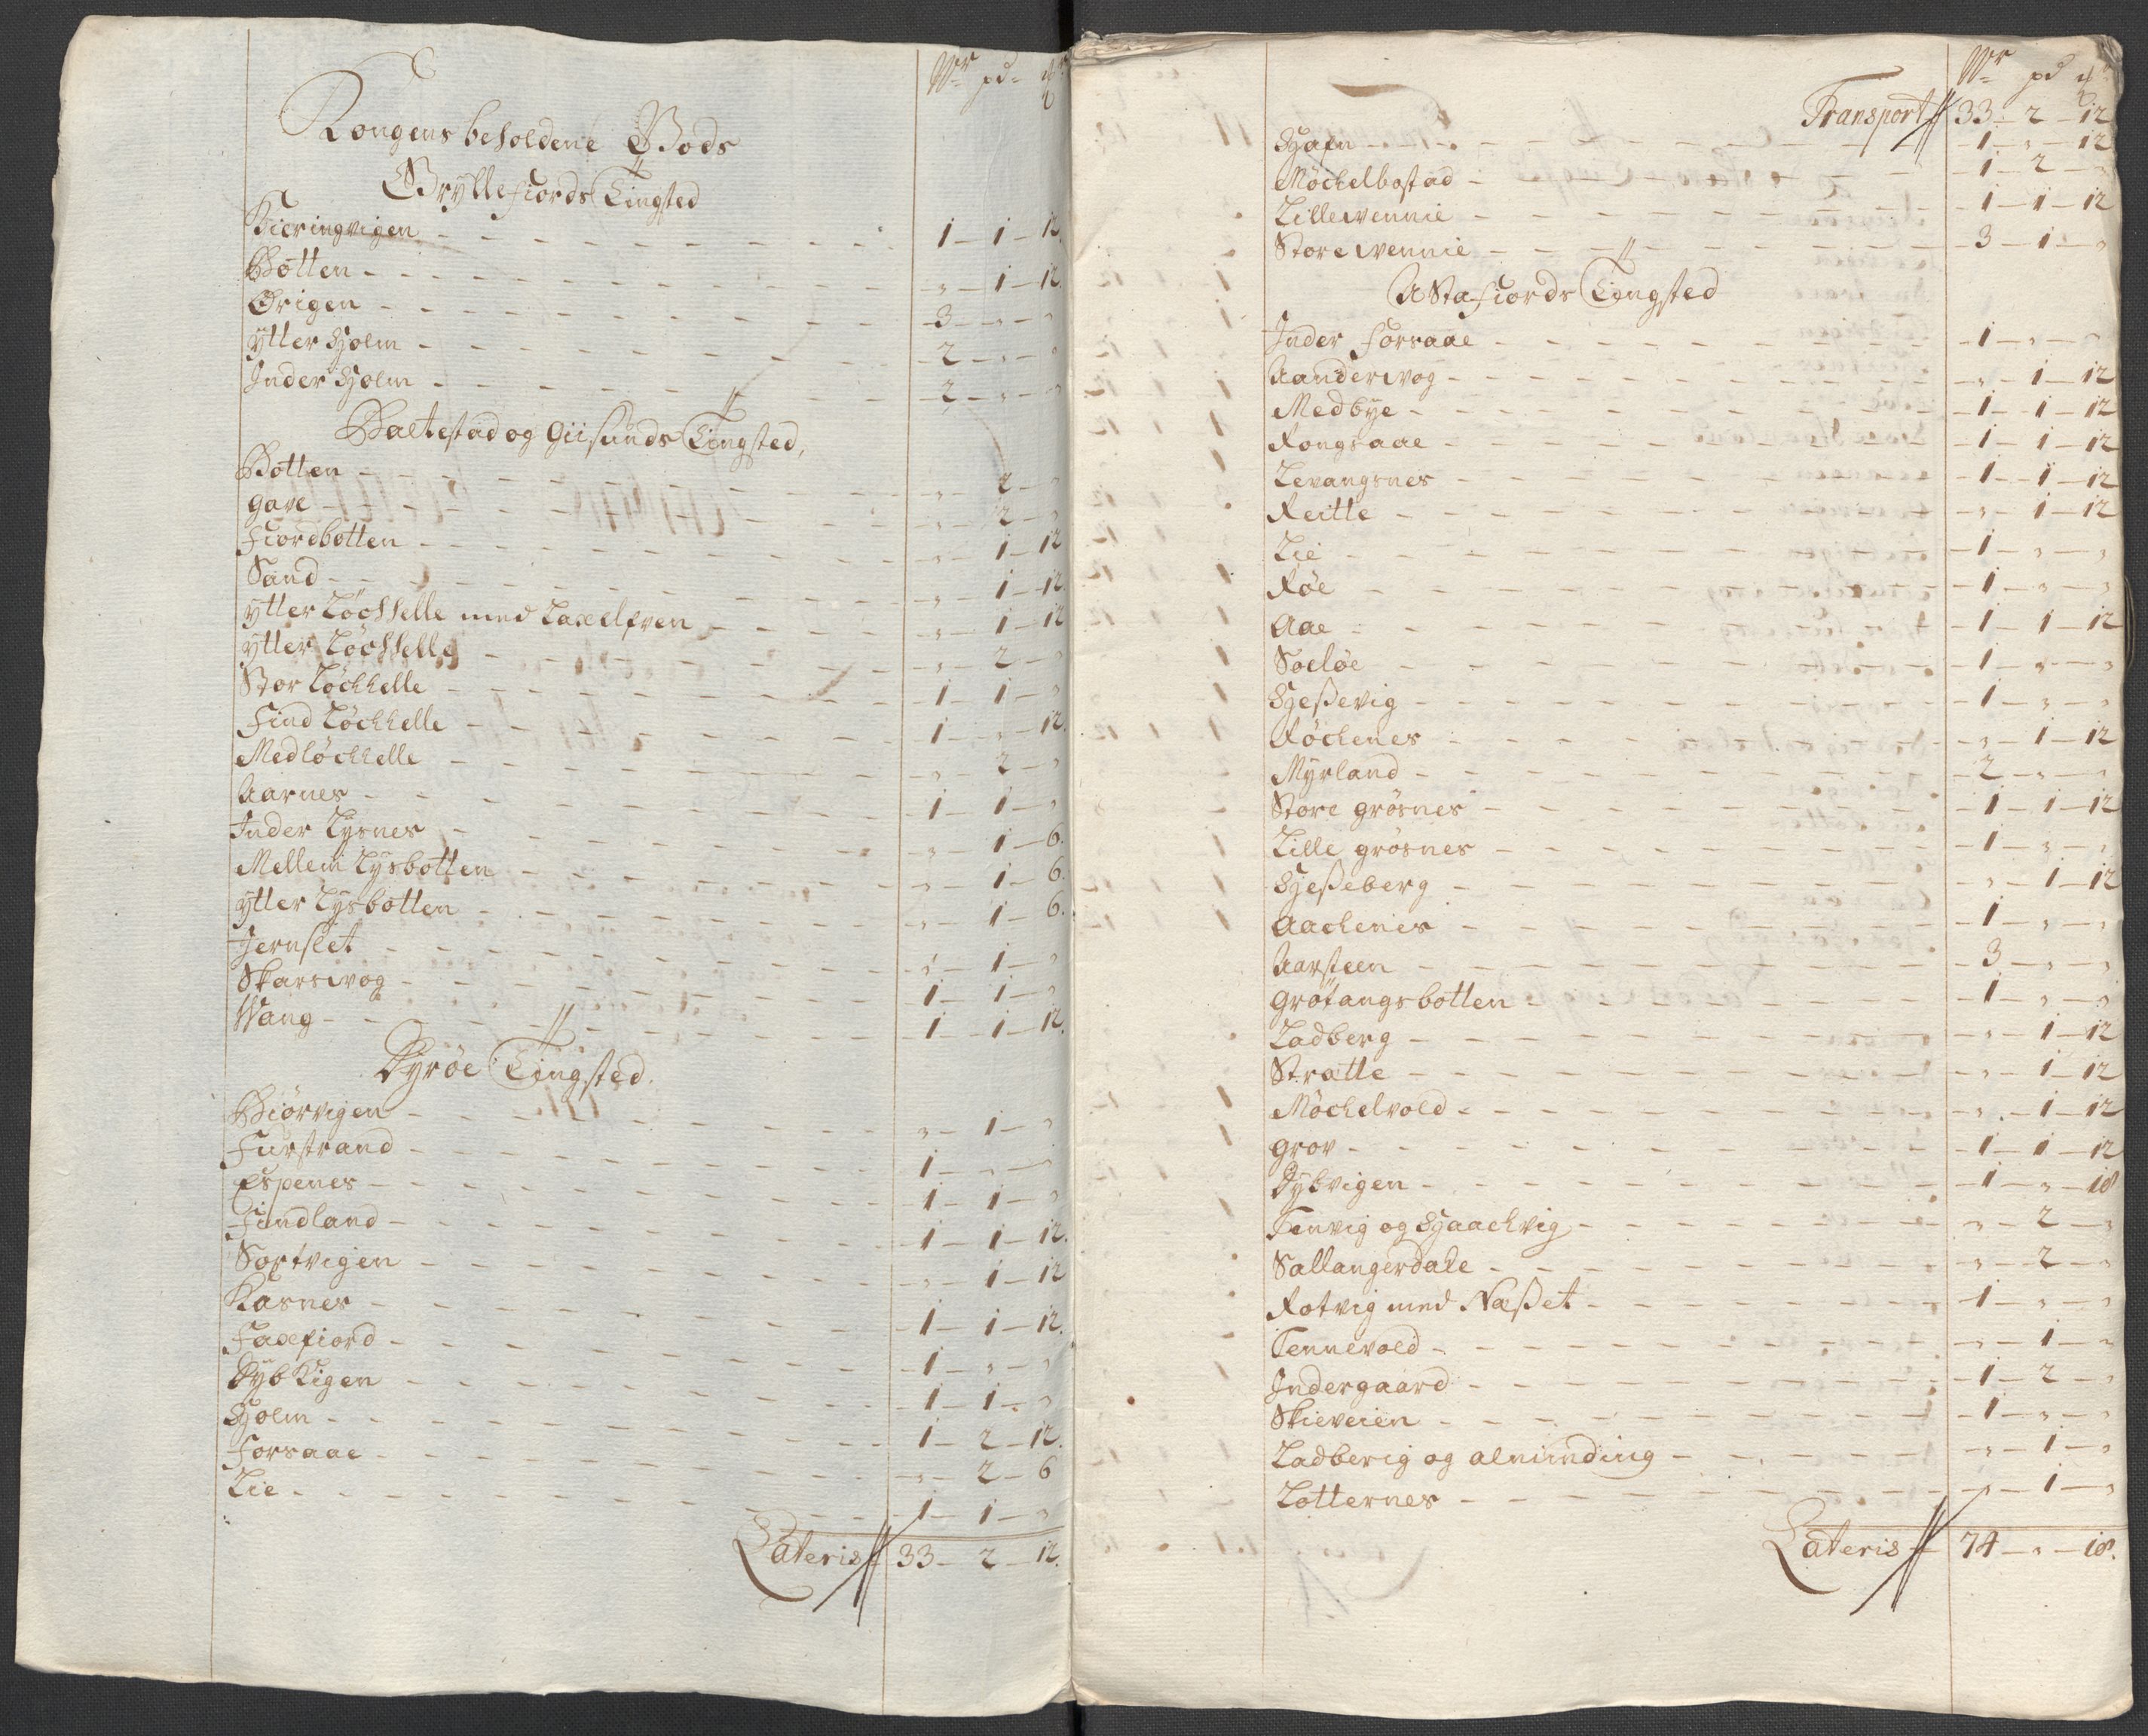 Wr pd ℔
Kongens beholdene Gods
Gryllefiords Tingsted
Kieringvigen 1 – 1 – 12.
Botten „ – 1 – 12.
Ørigen 3 – „ – „
ytter Holm 2 – „ – „
Inder Holm 2 – „ – „
Baltestad og Giisunds Tingsted,
Botten „ – 2 – „
gave „ – 2 – „
Fiordbotten „ – 1 – 12
Sand „ – 1 – 12.
ytter Löchhelle med Laxelfven „ – 1 – 12
ytter Löchhelle „ – 2 – „
Stor Löchhelle 1 – 1 – „
Find Löchhelle 1 – „ – 12.
Medlöchhelle „ – 2 – „
Aarnes 1 – 1 – „
Inder Lysnes „ – 1 – 6.
Mellem Lysbotten „ – 1 – 6.
ytter Lysbotten „ – 1 – 6.
Jernslet „ – 1 – „
Skarswog 1 – 1 – „
Wang 1 – 1 – 12.
Dyröe Tingsted.
Biörvigen „ – 1 – „
Furstrand 1 – „ – „
Espenes 1 – 1 – „
Findland 1 – 1 – 12.
Sortvigen „ – 1 – 12
Kasnes 1 – 1 – 12.
Faxefiord 1 – „ – „
Dybvigen 1 – 1 – „
Holm 1 – 2 – 12.
Forsaae „ – 2 – 6
Lie 1 – 1 – „
Lateris 33 – 2 – 12.
Wr pd ℔
Transport 33 – 2 – 12
Hafn 1 – „ – 12
Möchelbostad 1 – 2 – „
Lillewennie 1 – 1 – 12
Store wennie 3 – 1 – „
Astafiords Tingsted
Inder Forsaae 1 – „ – „
Aanderwog „ – 1 – 12
Medbye 1 – 1 – 12
Rongsaae 1 – 1 – 12
Levangsnes 1 – 1 – 12
Reitte „ – 1 – 12
Lie 1 – „ – „
Röe 1 – „ – „
Aae 1 – 1 – 12
Soelöe 1 – „ – „
Heßevig 1 – „ – „
Röchenes „ – 1 – 12
Myrland 2 – „ – „
Store grösnes 1 – 1 – 12
Lille grösnes 1 – „ – „
Heßeberg „ – 1 – 12
Aachenes 1 – „ – „
Aarsteen 3 – „ – „
Grötangsbotten 1 – „ – „
Ladberg „ – 1 – 12
Stratte „ – 1 – 12
Möchelvold „ – 1 – 12
grov 1 – 1 – 12
Dybvigen 1 – „ – 18
Tenvig og Haachvig „ – 2 – „
Sallangerdale „ – 2 – „
Rotvig med Næßet 1 – „ – „
Tennevold „ – 1 – „
Indergaard 1 – 2 – „
Skieveien 1 – „ – „
Ladberig og alminding „ – 1 – „
Lotternes „ – 1 – „
Lateris 74 – „ – 18.